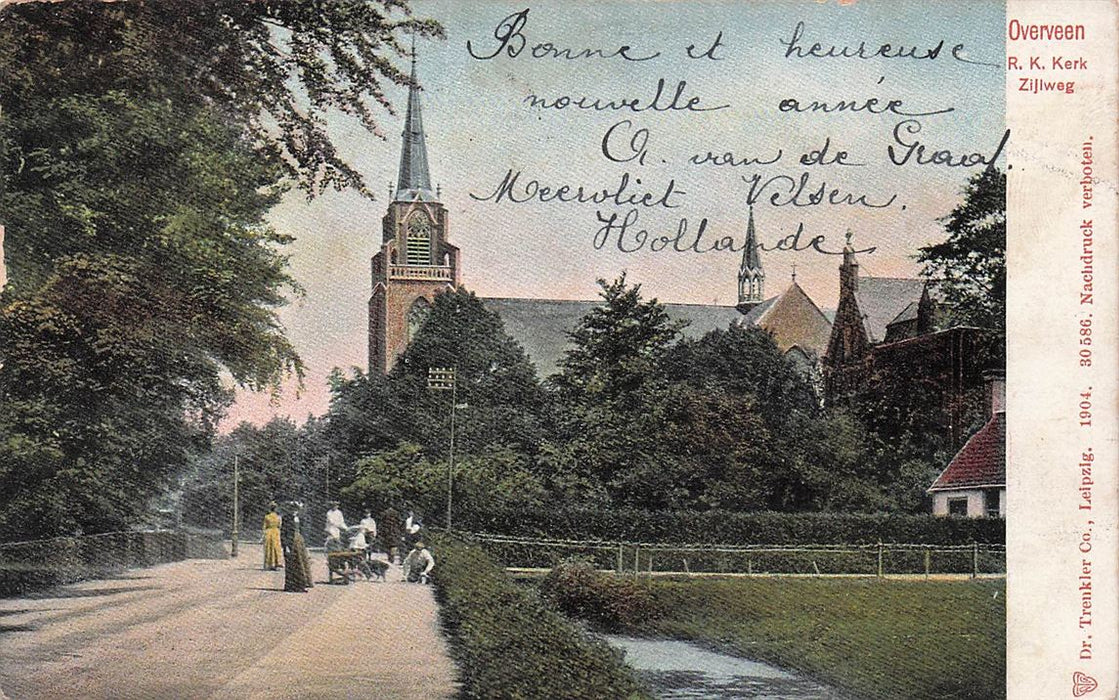 Bonne et heureuse
nouvelle année
A. van de Graaf.
Meervliet Velsen.
Hollande
Overveen
R. K. Kerk
Zijlweg
Dr. Trenkler Co., Leipzig, 1904. 30586. Nachdruck verboten.